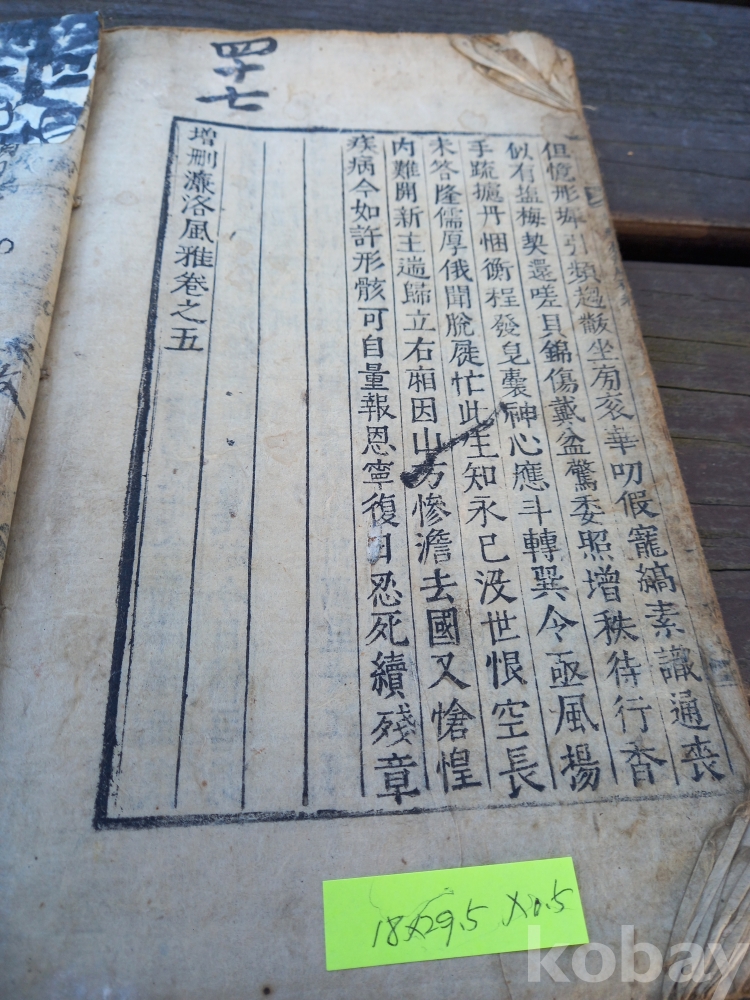 四十七
但憶彤墀引頻趨黻坐旁衮華叨假寵縞素識通喪
似有塩梅契還嗟貝錦傷戴盆驚委照增秩待行香
手疏攄丹悃衡程發皀囊神心應斗轉巽令亟風揚
未答隆儒厚俄聞脫屣忙此生知永已沒世恨空長
內難開新主遄歸立右廂因山方慘澹去國又愴惶
疾病今如許形骸可自量報恩寧復日忍死續殘章
增刪濂洛風雅卷之五
18×29.5 ×0.5
kobay